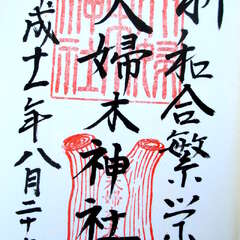 祈和合繁栄
夫婦木神社
平成十一年八月二十